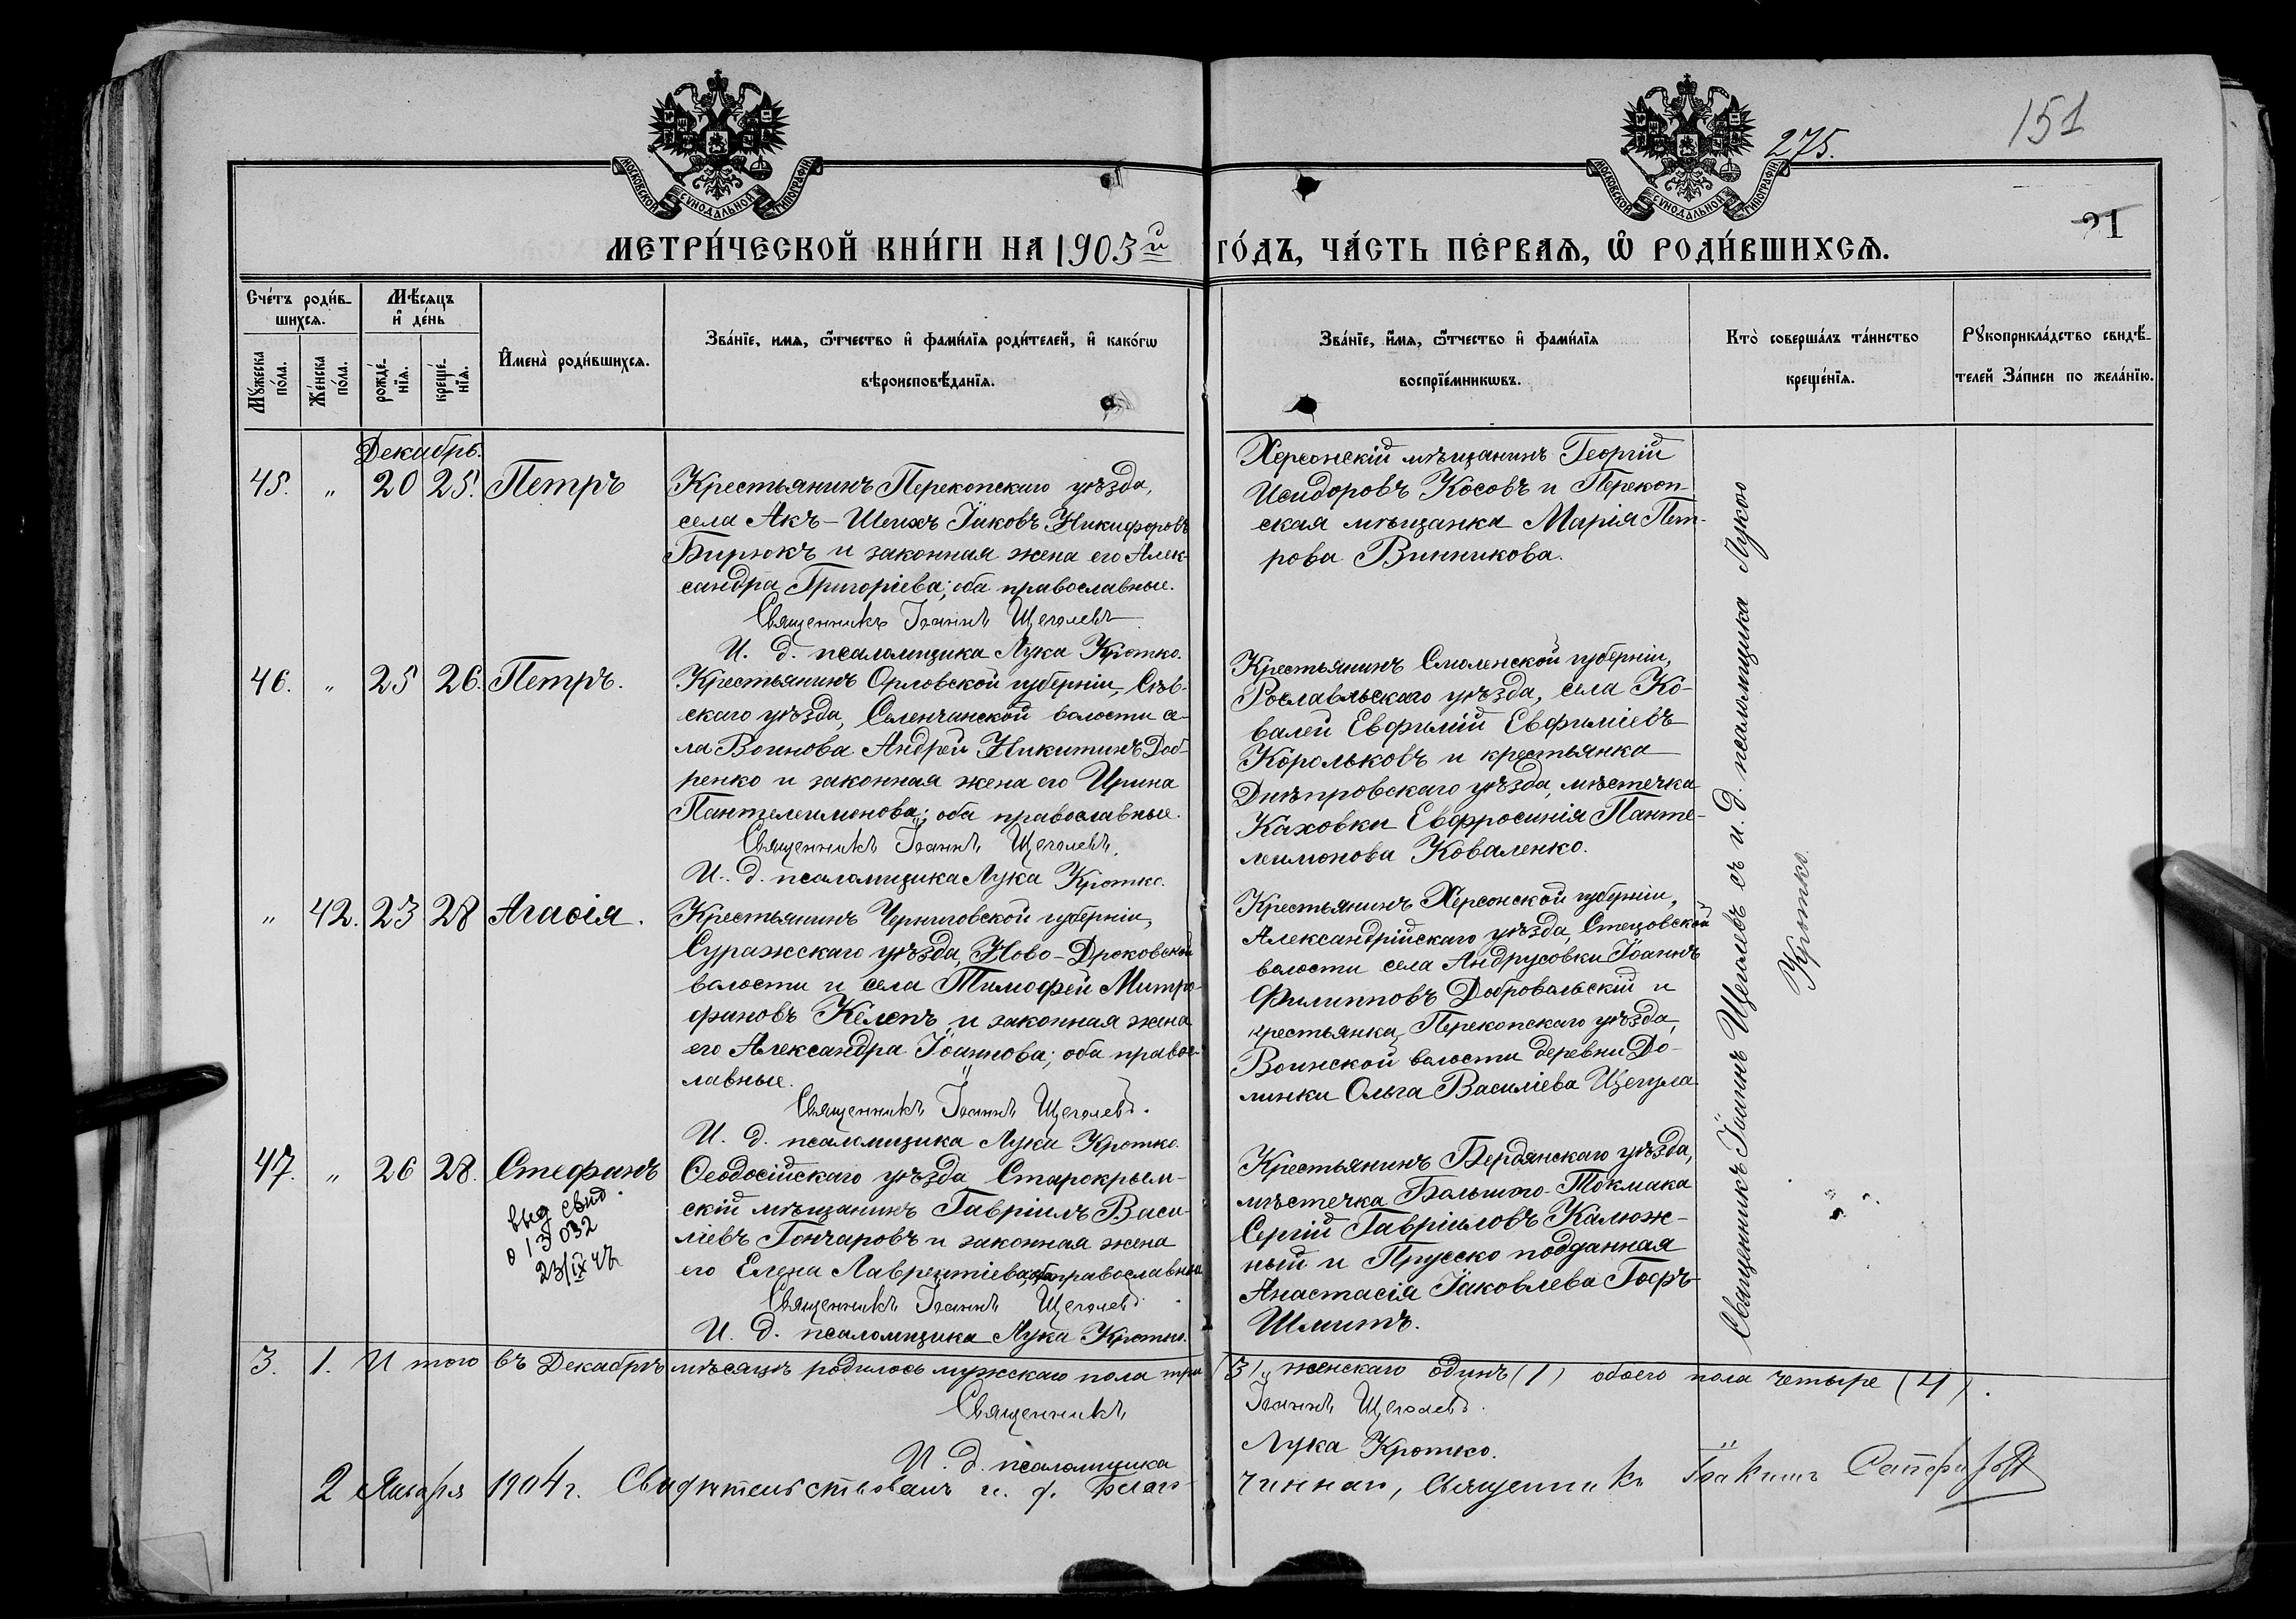 275.
151
21
МОСКОВСКОЙ СѴНОДАЛЬНОЙ ТИПОГРАФІИ
МОСКОВСКОЙ СѴНОДАЛЬНОЙ ТИПОГРАФІИ
МЕТРИ́ЧЕСКОЙ КНИ́ГИ НА 1903й ГО́ДЪ, ЧА́СТЬ ПЕ́РВАЯ, Ѡ҆ РОДИ́ВШИХСЯ.
Сче́тъ роди́в-
шихся.
Мѣ́сяцъ
и҆ де́нь
Мꙋ́жеска
по́ла.
Же́нска
по́ла.
рожде́-
нїя.
креще́-
нїя.
И҆мена̀ роди́вшихся.
Зва́нїе, имя, ѿчество и҆ фами́лїя роди́телей, и҆ како́гѡ
вѣроисповѣ́данїя.
Зва́нїе, и҆́мя, ѿчество и҆ фами́лїя
воспрїе́мникѡвъ.
Кто̀ соверша́лъ та́инство
креще́нїя.
Рꙋкоприкла́дство свидѣ́-
телей За́писи по жела́нїю.
Декабрь.
45. " 20 25. Петръ
Крестьянинъ Перекопскаго уѣзда,
села Акъ-Шеихъ Іаковъ Никифоровъ
Бирюкъ и законная жена его Алек-
сандра Григоріева; оба православные.
Священникъ Іоаннъ Щеголевъ
И. д. псаломщика Лука Кротко.
Херсонскій мѣщанинъ Георгій
Исидоровъ Косовъ и Перекоп-
ская мѣщанка Марія Пет-
рова Винникова.
46. " 25 26. Петръ.
Крестьянинъ Орловской губерніи, Сѣв-
скаго уѣзда, Селенчанской волости се-
ла Воинова Андрей Никитинъ Доб-
ренко и законная жена его Ирина
Пантелеимонова; оба православные.
Священникъ Іоаннъ Щеголевъ.
И. д. псаломщика Лука Кротко.
Крестьянинъ Смоленской губерніи,
Рославльскаго уѣзда, села Ко-
валей Евфимій Евфиміевъ
Корольковъ и крестьянка
Днѣпровскаго уѣзда, мѣстечка
Каховки Евфросинія Панте-
леимонова Коваленко.
" 42. 23 28 Агаѳія.
Крестьянинъ Черниговской губерніи,
Суражскаго уѣзда, Ново-Дроковской
волости и села Тимофей Митро-
фановъ Келепъ и законная жена
его Александра Іоаннова; оба правос-
лавные.
Священникъ Іоаннъ Щеголевъ.
И. д. псаломщика Лука Кротко.
Крестьянинъ Херсонской губерніи,
Александрійскаго уѣзда, Стецовской
волости села Андрусовки Іоаннъ
Филипповъ Добровольскій и
крестьянка, Перекопскаго уѣзда,
Воинской волости деревни До-
линки Ольга Василіева Щегула
47. " 26 28. Стефанъ
выд свид.
013032
23/IX 47
Ѳеодосійскаго уѣзда Старокрым-
скій мѣщанинъ Гавріилъ Васи-
ліевъ Гончаровъ и законная жена
его Елена Лаврентіева; оба православны
Священникъ Іоаннъ Щеголевъ.
И. д. псаломщика Лука Кротко.
Крестьянинъ Бердянскаго уѣзда,
мѣстечка Большого-Токмака
Сергій Гавріиловъ Калюж-
ный и Прусско подданная
Анастасія Іаковлева Гофъ-
Шмитъ.
Священникъ Іоаннъ Щеголевъ съ и. д. псаломщика Лукою
Кротко.
3. 1. Итого въ Декабрѣ мѣсяцѣ родилось мужскаго пола три (3), женскаго одинъ (1) обоего пола четыре (4).
Священникъ Іоаннъ Щеголевъ.
И. д. псаломщика Лука Кротко.
2 Января 1904 г. Свидѣтельствовалъ и. д. Благо-
чиннаго, Священникъ Іоакимъ